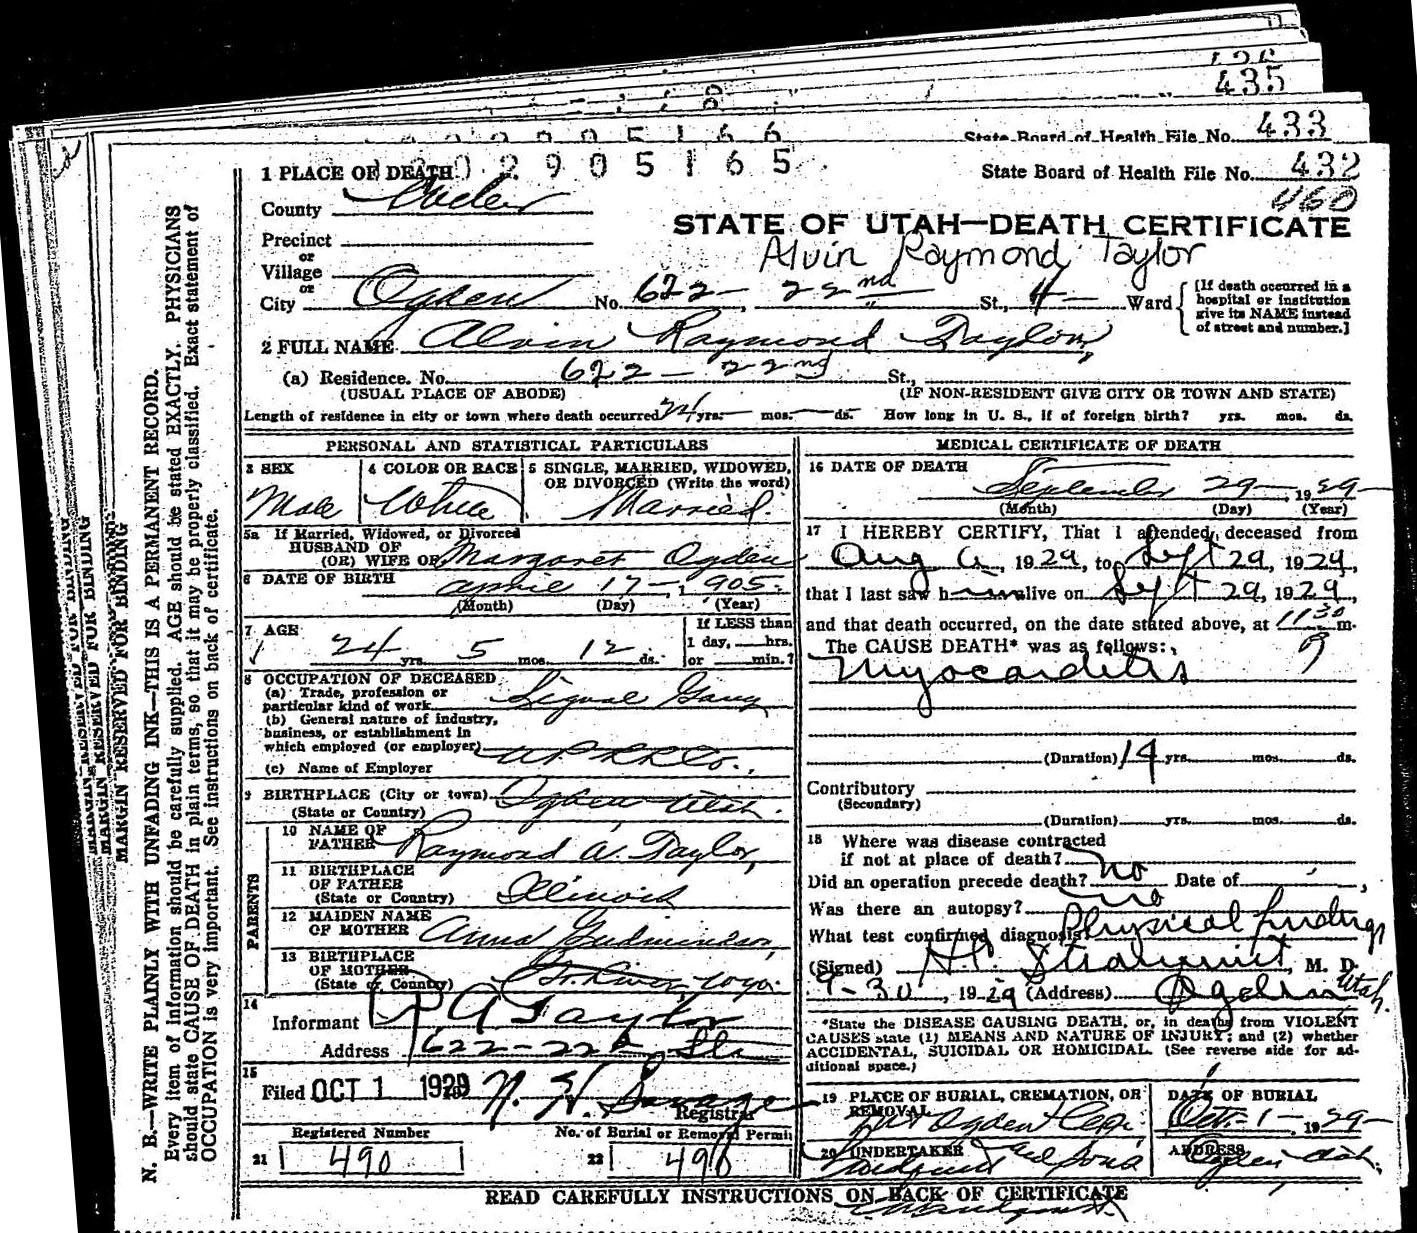 435
State Board of Health File No. 433
State Board of Health File No. 432
460
2 0 2 9 0 5 1 6 5
1 PLACE OF DEATH
County Weber
STATE OF UTAH—DEATH CERTIFICATE
Alvin Raymond Taylor
Precinct
or
Village
or
City Ogden No. 622 - 22nd St., 4 - Ward
[If death occurred in a
hospital or institution
give its NAME instead
of street and number.]
2 FULL NAME Alvin Raymond Taylor
(a) Residence. No. 622 - 22nd St.,
(USUAL PLACE OF ABODE) (IF NON-RESIDENT GIVE CITY OR TOWN AND STATE)
Length of residence in city or town where death occurred 24 yrs. — mos. — ds. How long in U. S., if of foreign birth? yrs. mos. ds.
PERSONAL AND STATISTICAL PARTICULARS
3 SEX Male
4 COLOR OR RACE White
5 SINGLE, MARRIED, WIDOWED,
OR DIVORCED (Write the word)
Married.
5a If Married, Widowed, or Divorced
HUSBAND OF
(OR) WIFE OF Margaret Ogden
6 DATE OF BIRTH April 17 - 1905.
(Month) (Day) (Year)
7 AGE
24 yrs. 5 mos. 12 ds.
If LESS than
1 day, hrs.
or min.?
8 OCCUPATION OF DECEASED
(a) Trade, profession or
particular kind of work Signal Gang
(b) General nature of industry,
business, or establishment in
which employed (or employer) U.P.R.R.Co.
(c) Name of Employer
9 BIRTHPLACE (City or town) Ogden Utah.
(State or Country)
PARENTS
10 NAME OF
FATHER Raymond A. Taylor,
11 BIRTHPLACE
OF FATHER
(State or Country) Illinois
12 MAIDEN NAME
OF MOTHER Anna Gudmundson,
13 BIRTHPLACE
OF MOTHER
(State or Country) Wyo.
14
Informant R A Taylor
Address 622-22nd St
15
Filed OCT 1 1929 N. H. Savage
Registrar
Registered Number No. of Burial or Removal Permit
21 490 22 490
MEDICAL CERTIFICATE OF DEATH
16 DATE OF DEATH
September 29 - 1929
(Month) (Day) (Year)
17 I HEREBY CERTIFY, That I attended deceased from
Aug 6, 1929, to Sept 29, 1929,
that I last saw him alive on Sept 29, 1929,
and that death occurred, on the date stated above, at 11 30 m.
The CAUSE DEATH* was as follows:
Myocarditis
(Duration) 14 yrs. mos. ds.
Contributory
(Secondary)
(Duration) yrs. mos. ds.
18 Where was disease contracted
if not at place of death?
Did an operation precede death? no Date of
Was there an autopsy? no
What test confirmed diagnosis Physical findings
(Signed) H.C. Stranquist, M. D.
9-30, 1929 (Address) Ogden Utah.
*State the DISEASE CAUSING DEATH, or, in deaths from VIOLENT
CAUSES state (1) MEANS AND NATURE OF INJURY; and (2) whether
ACCIDENTAL, SUICIDAL OR HOMICIDAL. (See reverse side for ad-
ditional space.)
19 PLACE OF BURIAL, CREMATION, OR
REMOVAL Ogden Cem.
DATE OF BURIAL
Oct. - 1 - 1929 -
20 UNDERTAKER Lindquist and Sons
ADDRESS Ogden Utah.
READ CAREFULLY INSTRUCTIONS ON BACK OF CERTIFICATE
MARGIN RESERVED FOR BINDING
N. B.—WRITE PLAINLY WITH UNFADING INK—THIS IS A PERMANENT RECORD.
Every item of information should be carefully supplied. AGE should be stated EXACTLY. PHYSICIANS
should state CAUSE OF DEATH in plain terms, so that it may be properly classified. Exact statement of
OCCUPATION is very important. See instructions on back of certificate.